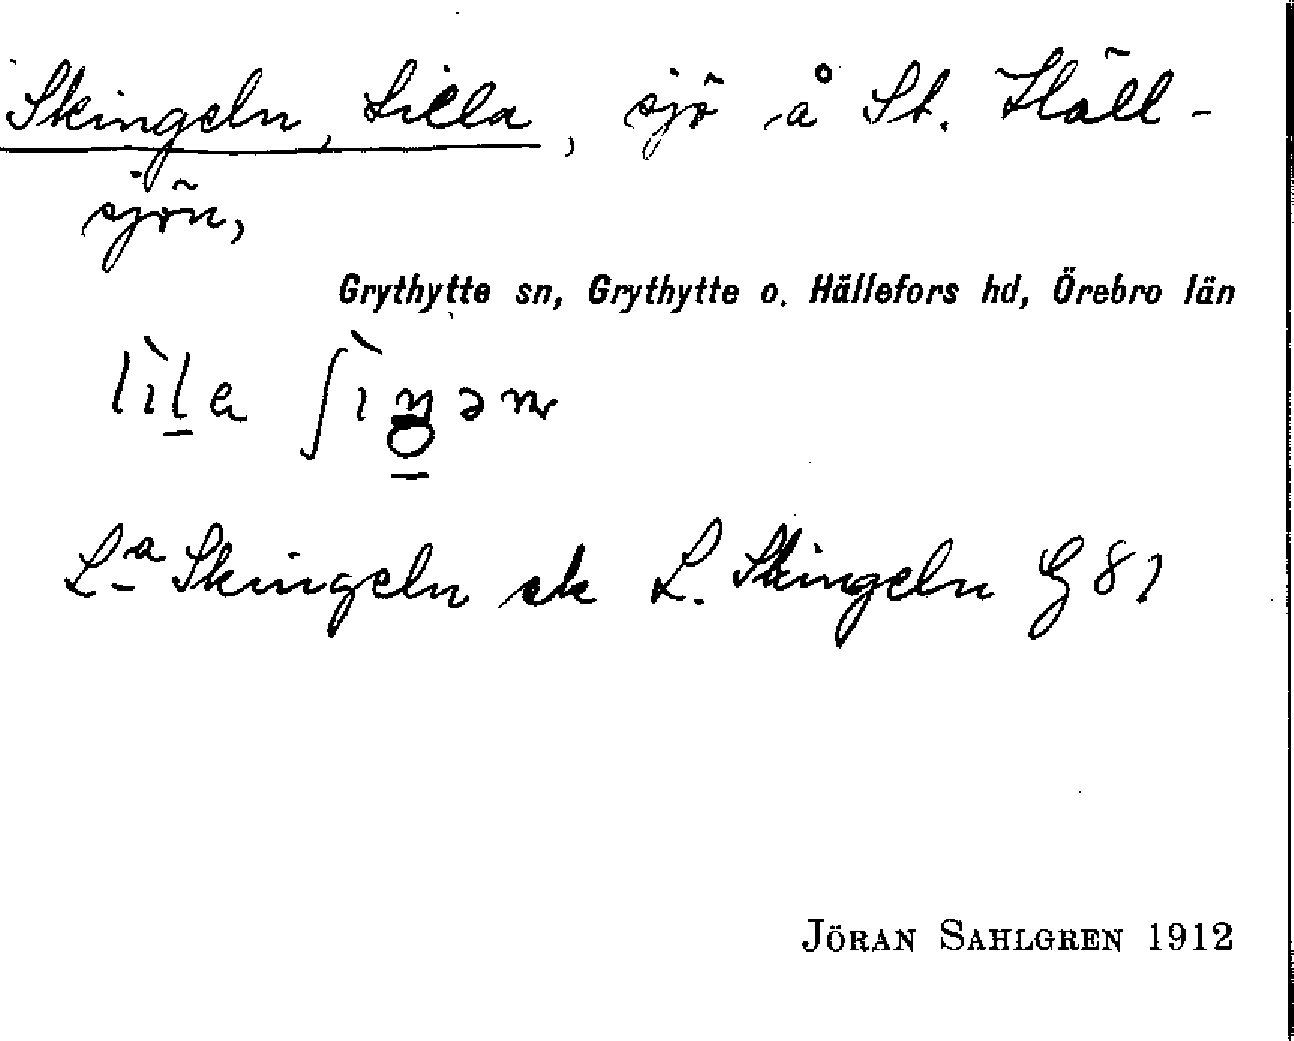 Skingeln, Lilla, sjö å St. Häll-
sjön,
Grythytte sn, Grythytte o. Hällefors hd, Örebro län
lìla ʃìŋən
L:a Skingeln ek L. Skingeln G 81
JÖRAN SAHLGREN 1912